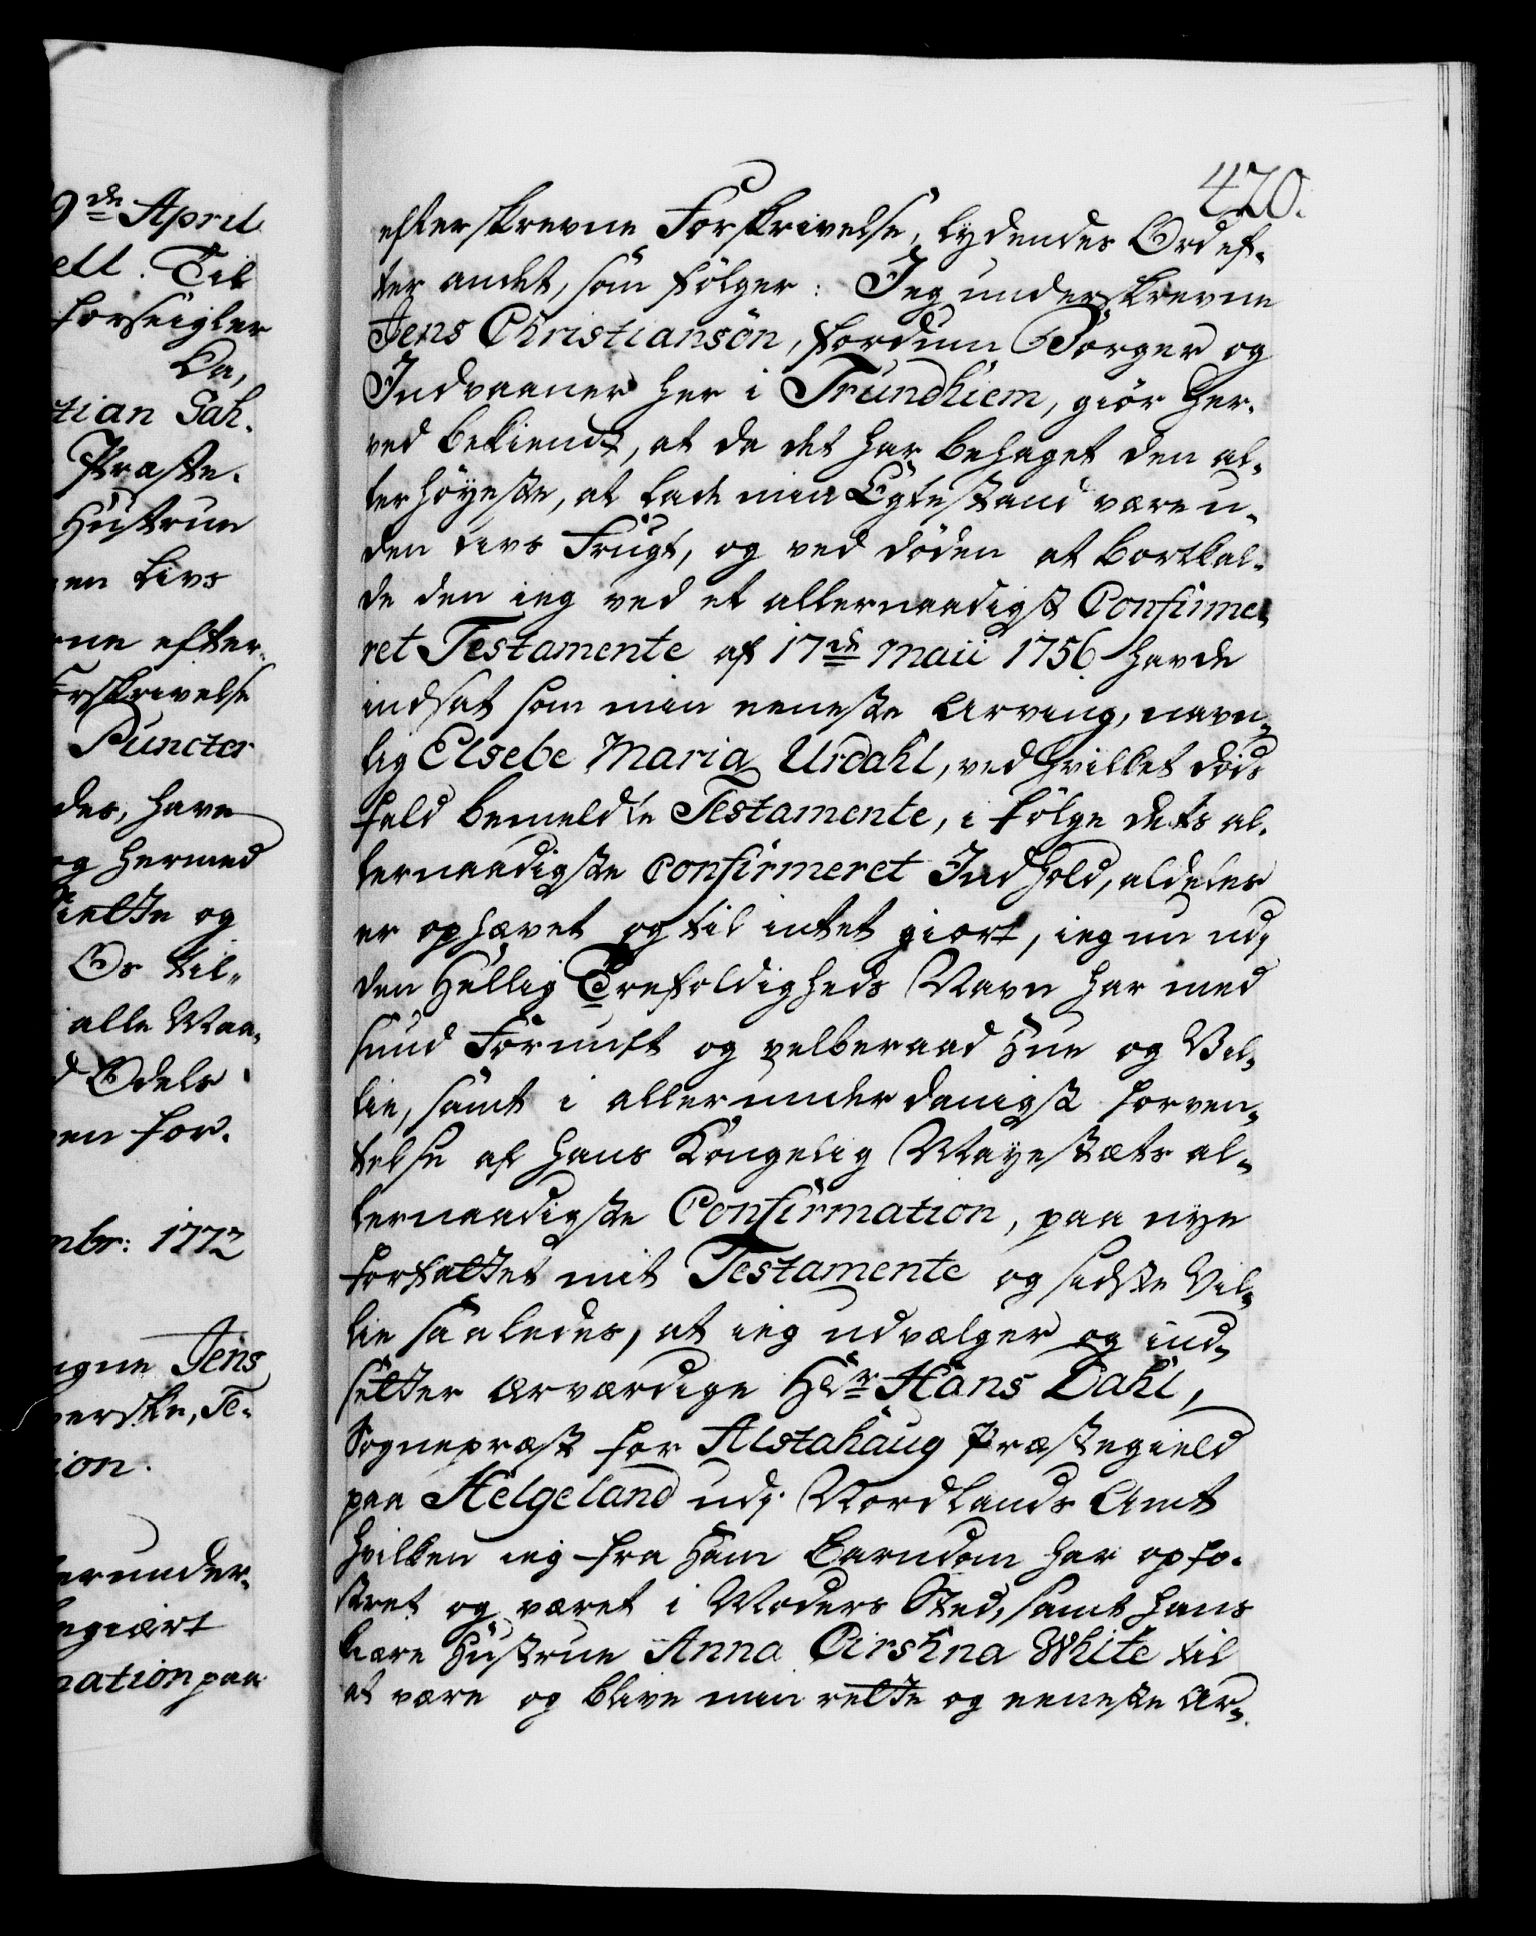 9de April
ell. Til
forseigler
Ca,
tian Sah.
Præste.
Hustrue
gen Livs
rne efter-
Forskrivelse
Puncter
des, have
og hermed
Rette og
Os til-
alle Maa-
d Odels
gen for.
mbr: 1772
igne Jens
verske, Te-
ion.
lerunder-
begiært
mation paa
420.
efterskrevne Forskrivelse, lydendes Ord ef-
ter andet, som følger: Jeg underskrevne
Jens Christiansøn, fordum Borger og
Indvaaner her i Trundhiem, giør her-
ved bekiendt, at da det har behaget den al-
lerhöyeste, at lade min Egtestand være u-
den Livs Frugt, og ved døden at bortkal-
de den ieg ved et allernaadigst Confirme-
ret Testamente af 17de Maii 1756 havde
indsat som min eeneste Arving, navn-
lig Elsebe Maria Urdahl, ved hvilket døds
fald bemeldte Testamente, i følge dets al-
lernaadigste Confirmeret Indhold, aldeles
er ophævet og til intet giort, ieg nu udi
den Hellig Trefoldigheds Navn har med
sund Fornuft og velberaad Hue og Vil-
lie, samt i allerunderdanigst forven-
telse af Hans Kongelig Mayestæts al-
lernaadigste Confirmation, paa nye
forfattet mit Testamente og sidste Vil-
lie saaledes, at ieg udvælger og ind-
setter ærværdige Hdr Hans Dahl,
Sognepræst for Alstahaug Præstegield
paa Helgeland udi Nordlands Amt
hvilken ieg fra Ham Barndom har opfo-
stret og været i Moders Sted, samt hans
kiære Hustrue Anna Cirstina White til
at være og blive min rette og eeneste Ar-